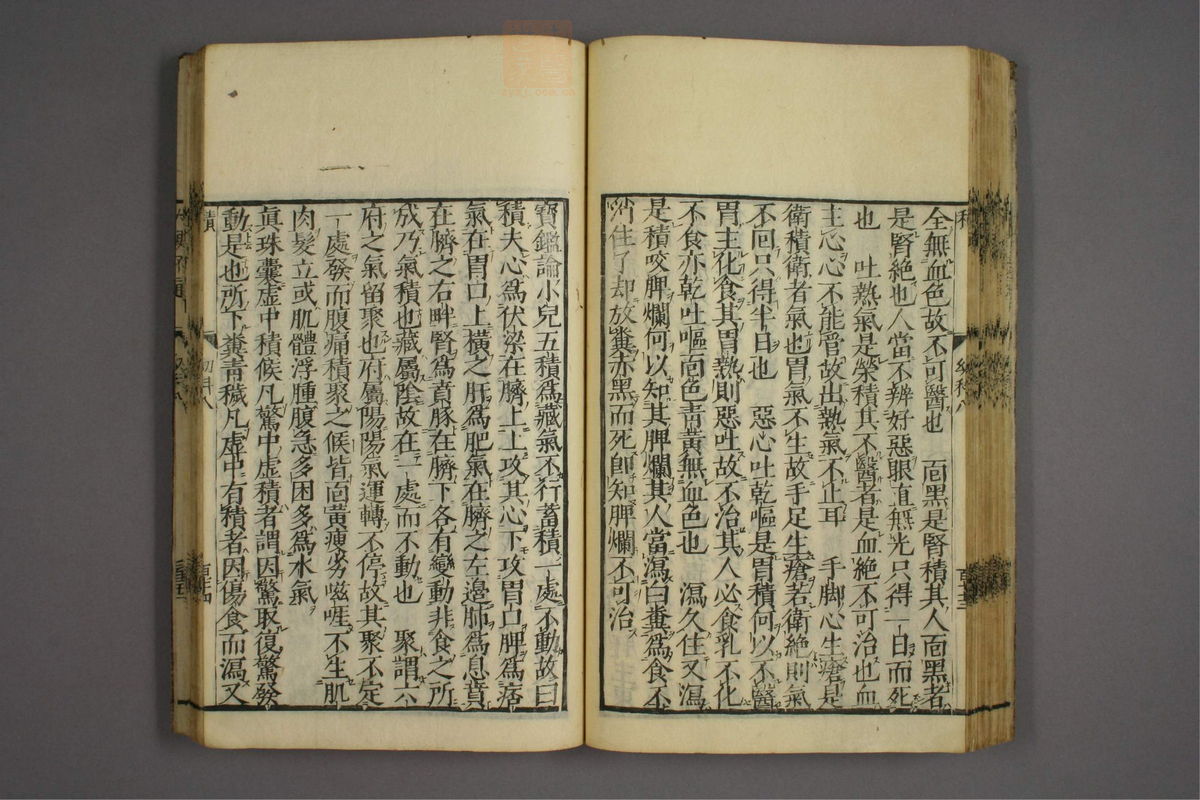 全無血色故不可醫也　靣黑是腎積其人靣黑者
是腎絶也人當不辨好惡眼直無光只得一日而死
也　吐熱氣是榮積其不醫者是血絶不可治也血
主心心不能管故出熱氣不止耳　手脚心生瘡是
衛積衛者氣也胃氣不生故手足生瘡若衛絶則氣
不回只得半日也　惡心吐乾嘔是胃積何以不醫
胃主化食其胃熱則惡吐故不治其人必食乳不化
不食亦乾吐嘔靣色青黃無血色也　瀉久住又瀉
是積咬脾爛何以知其脾爛其人當瀉白糞爲食不
消住了却放糞赤黑而死卽知脾爛不可治
寶鑑論小兒五積爲藏氣不行蓄積一處不動故曰
積夫心爲伏梁在臍上上攻其心下攻胃口脾爲痞
氣在胃口上橫之肝爲肥氣在臍之左邊肺爲息賁
在臍之右畔腎爲賁豚在臍下各有變動非食之所
成乃氣積也藏屬陰故在一處而不動也　聚謂六
府之氣留聚也府屬陽陽氣運轉不停故其聚不定
一處發而腹痛積聚之候皆靣黃瘦劣嗞啀不生肌
肉髮立或肌體浮腫腹急多困多爲水氣
眞珠囊虛中積候凡驚中虛積者謂因驚取復驚發
動是也所下糞靑穢凡虛中有積者因傷食而瀉又
積